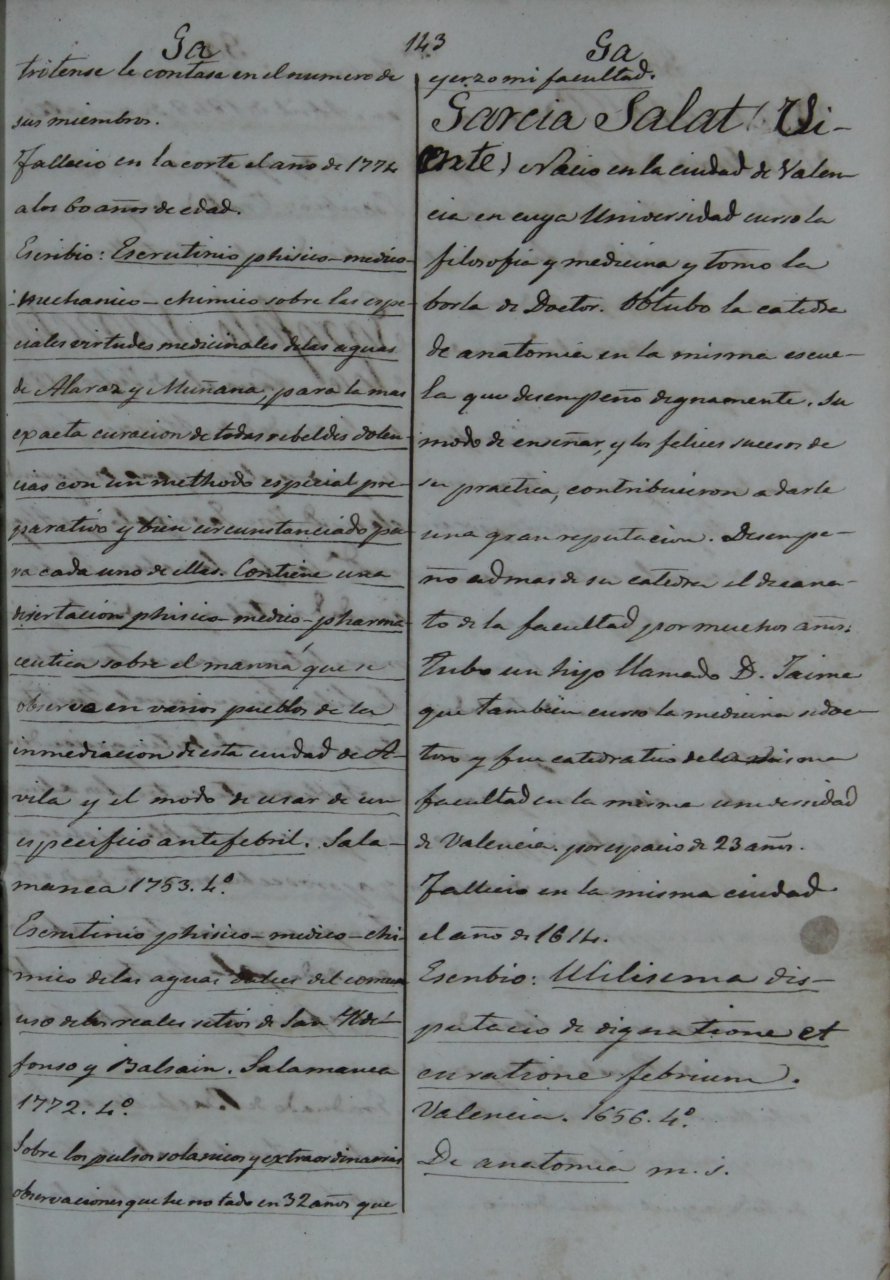 Ga
143
Ga
tritense le contase en el numero de
sus miembros.
Fallecio en la corte el año de 1774
a los 60 años de edad.
Escribio: Escrutinio phisico-medico-
-mechanico-chimico sobre las espe-
ciales virtudes medicinales de las aguas
de Alaraz y Muñana, para la mas
exacta curacion de todas rebeldes dolen-
cias con un methodo especial pre-
parativo y bien circunstanciado pa-
ra cada uno de ellas. Contiene una
disertacion phisico-medico-pharma-
ceutica sobre el manná que se
observa en varios pueblos de la
inmediacion de esta ciudad de A-
vila y el modo de usar de un
especifico antefebril. Sala-
manca 1753. 4º
Escrutinio phisico-medico-chi-
mico de las aguas dulces del comun
uso de los reales sitios de San Ilde-
fonso y Balsain. Salamanca
1772. 4º
Sobre los pulsos solanicos y extraordinarias
observaciones que he notado en 32 años que
ejerzo mi facultad.
Garcia Salat (Vi-
cente) Nacio en la ciudad de Valen-
cia en cuya Universidad curso la
filosofia y medicina y tomo la
borla de Doctor. Obtubo la catedra
de anatomia en la misma escue-
la que desempeño dignamente. Su
modo de enseñar, y los felices sucesos de
su practica, contribuieron a darle
una gran reputacion. Desempe-
ño ademas de su catedra el decana-
to de la facultad por muchos años.
tubo un hijo llamado D. Jaime
que tambien curso la medicina se doc-
toro y fue catedratico de la misma
facultad en la misma universidad
de Valencia. por espacio de 23 años.
Fallecio en la misma ciudad
el año de 1614.
Escribio: Utilisima dis-
putacio de dignatione et
curatione febrium.
Valencia. 1656. 4º
De anatomia m.s.